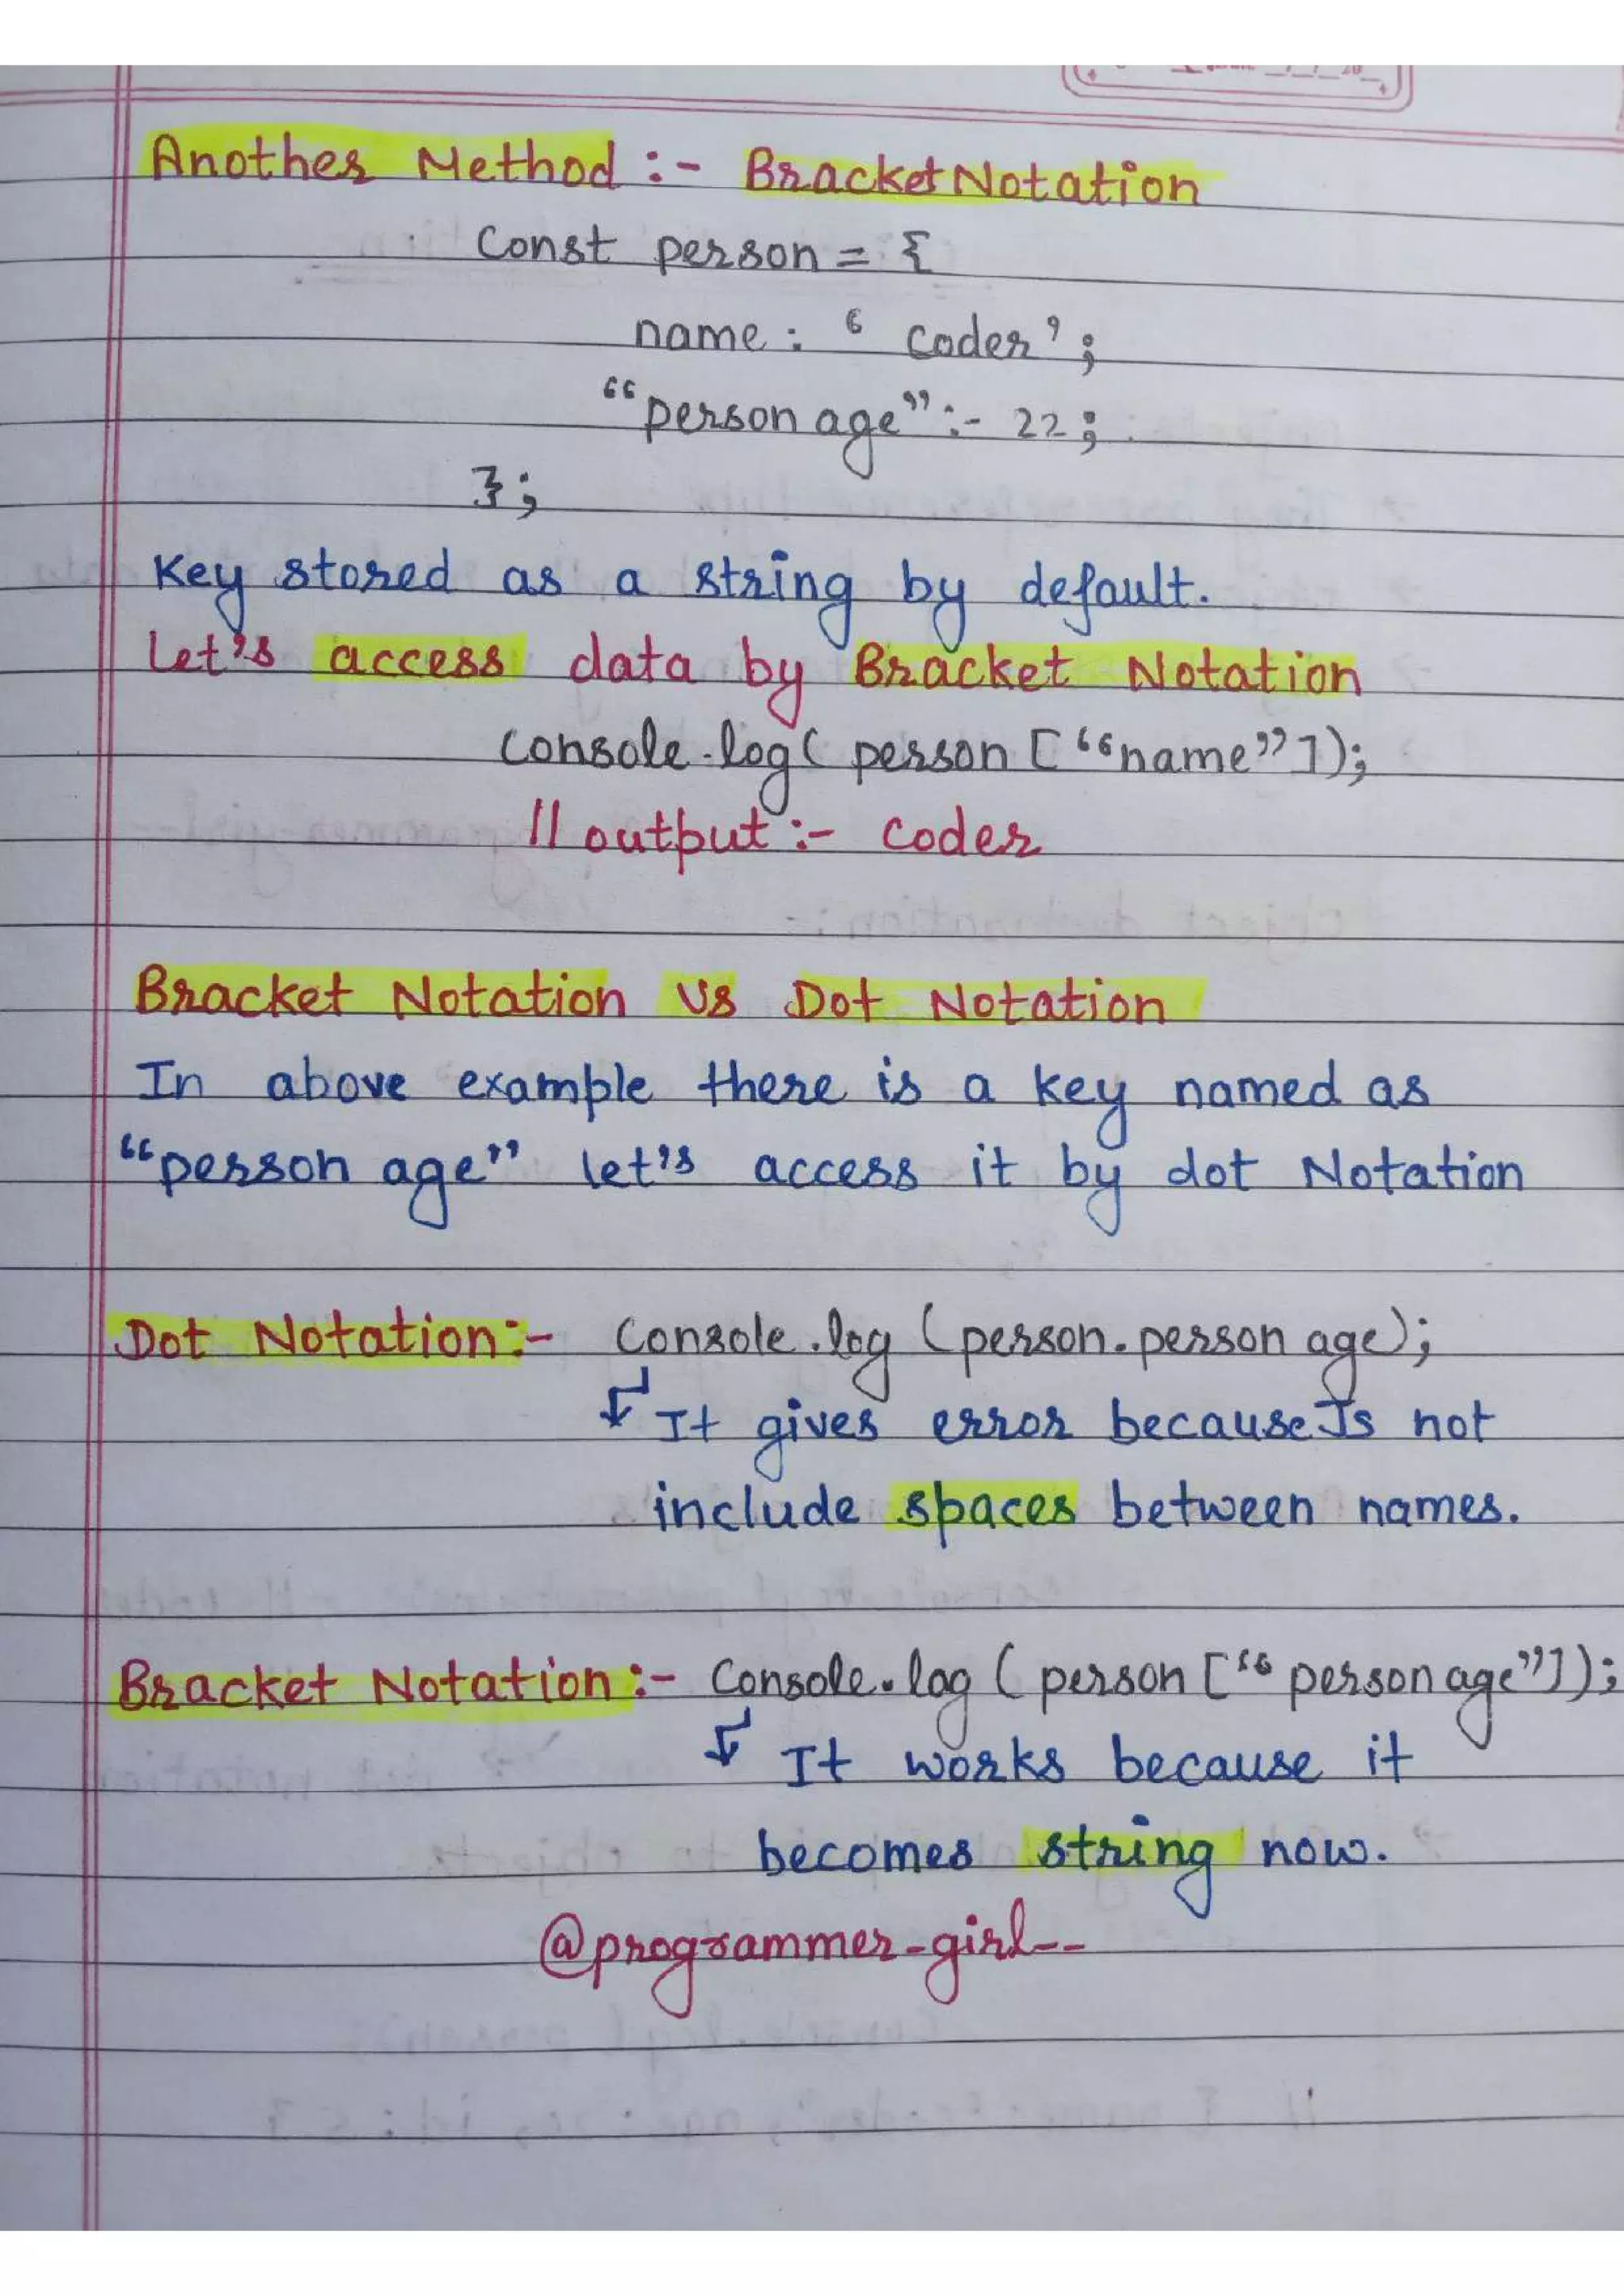 Another Method :- Bracket Notation
Const person = {
name : ‘ Coder’ ;
“person age” :- 22 ;
} ;
Key stored as a string by default.
Let's access data by Bracket Notation
Console.log( person [ “name” ] );
// output :- Coder
Bracket Notation Vs Dot Notation
In above example there is a key named as
“person age” let's access it by dot Notation
Dot Notation :- Console.log (person.person age);
↓ It gives error because Js not
include spaces between names.
Bracket Notation :- Console.log ( person [“ person age”] );
↓ It works because it
becomes string now.
@programmer_girl--